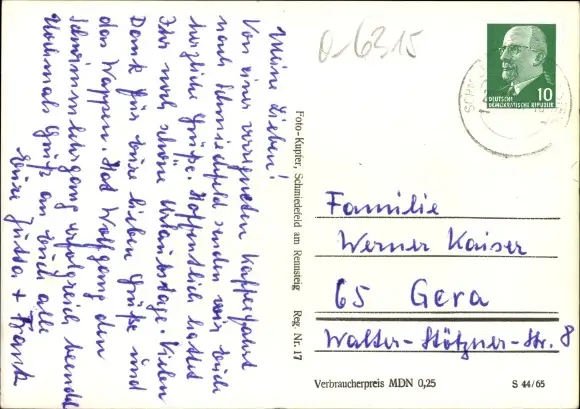 Meine Lieben!
Von einer verregneten Kaffeefahrt
nach Schmiedefeld senden wir Euch
herzliche Grüße. Hoffentlich hattet
Ihr noch schöne Urlaubstage. Vielen
Dank für Eure lieben Grüße und
das Wappen. Hat Wolfgang den
Schwimmlehrgang erfolgreich beendet
Nochmals Grüße an Euch alle
Eure Jutta + Frank
Foto-Kupfer, Schmiedefeld am Rennsteig Reg. Nr. 17
0-6315
10
DEUTSCHE
DEMOKRATISCHE REPUBLIK
Familie
Werner Kaiser
65 Gera
Walter-Stötzner-Str. 8
Verbraucherpreis MDN 0,25 S 44/65